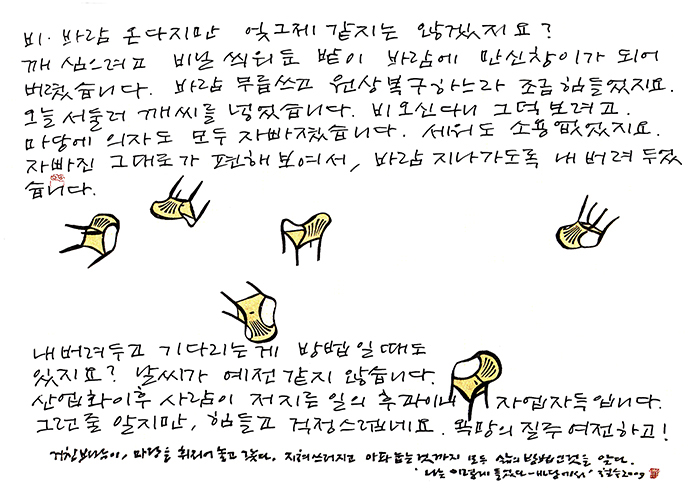 비. 바람 온다지만 엊그제 같지는 않겠지요?
깨 심으려고 비닐 씌워둔 밭이 바람에 만신창이가 되어
버렸습니다. 바람 무릅쓰고 원상복구하느라 조금 힘들었지요.
오늘 서둘러 깨씨를 넣었습니다. 비오신다니 그덕 보려고.
마당에 의자도 모두 자빠졌습니다. 세워도 소용없었지요.
자빠진 그대로가 편해 보여서, 바람 지나가도록 내버려 두었
습니다.
내버려두고 기다리는게 방법일 때도
있지요? 날씨가 예전 같지 않습니다.
산업화이후 사람이 저지른 일의 후과이니 자업자득입니다.
그런줄 알지만, 힘들고 걱정스럽네요. 욕망의 질주 여전하고!
거친 바람이, 마당을 휘저어 놓고 갔다. 지혜 쓰러지고 아파 눕는 것까지 모두 삶의 방법인 것을 안다.
'나는 이렇게 들었다-마당에서' 철수 2009